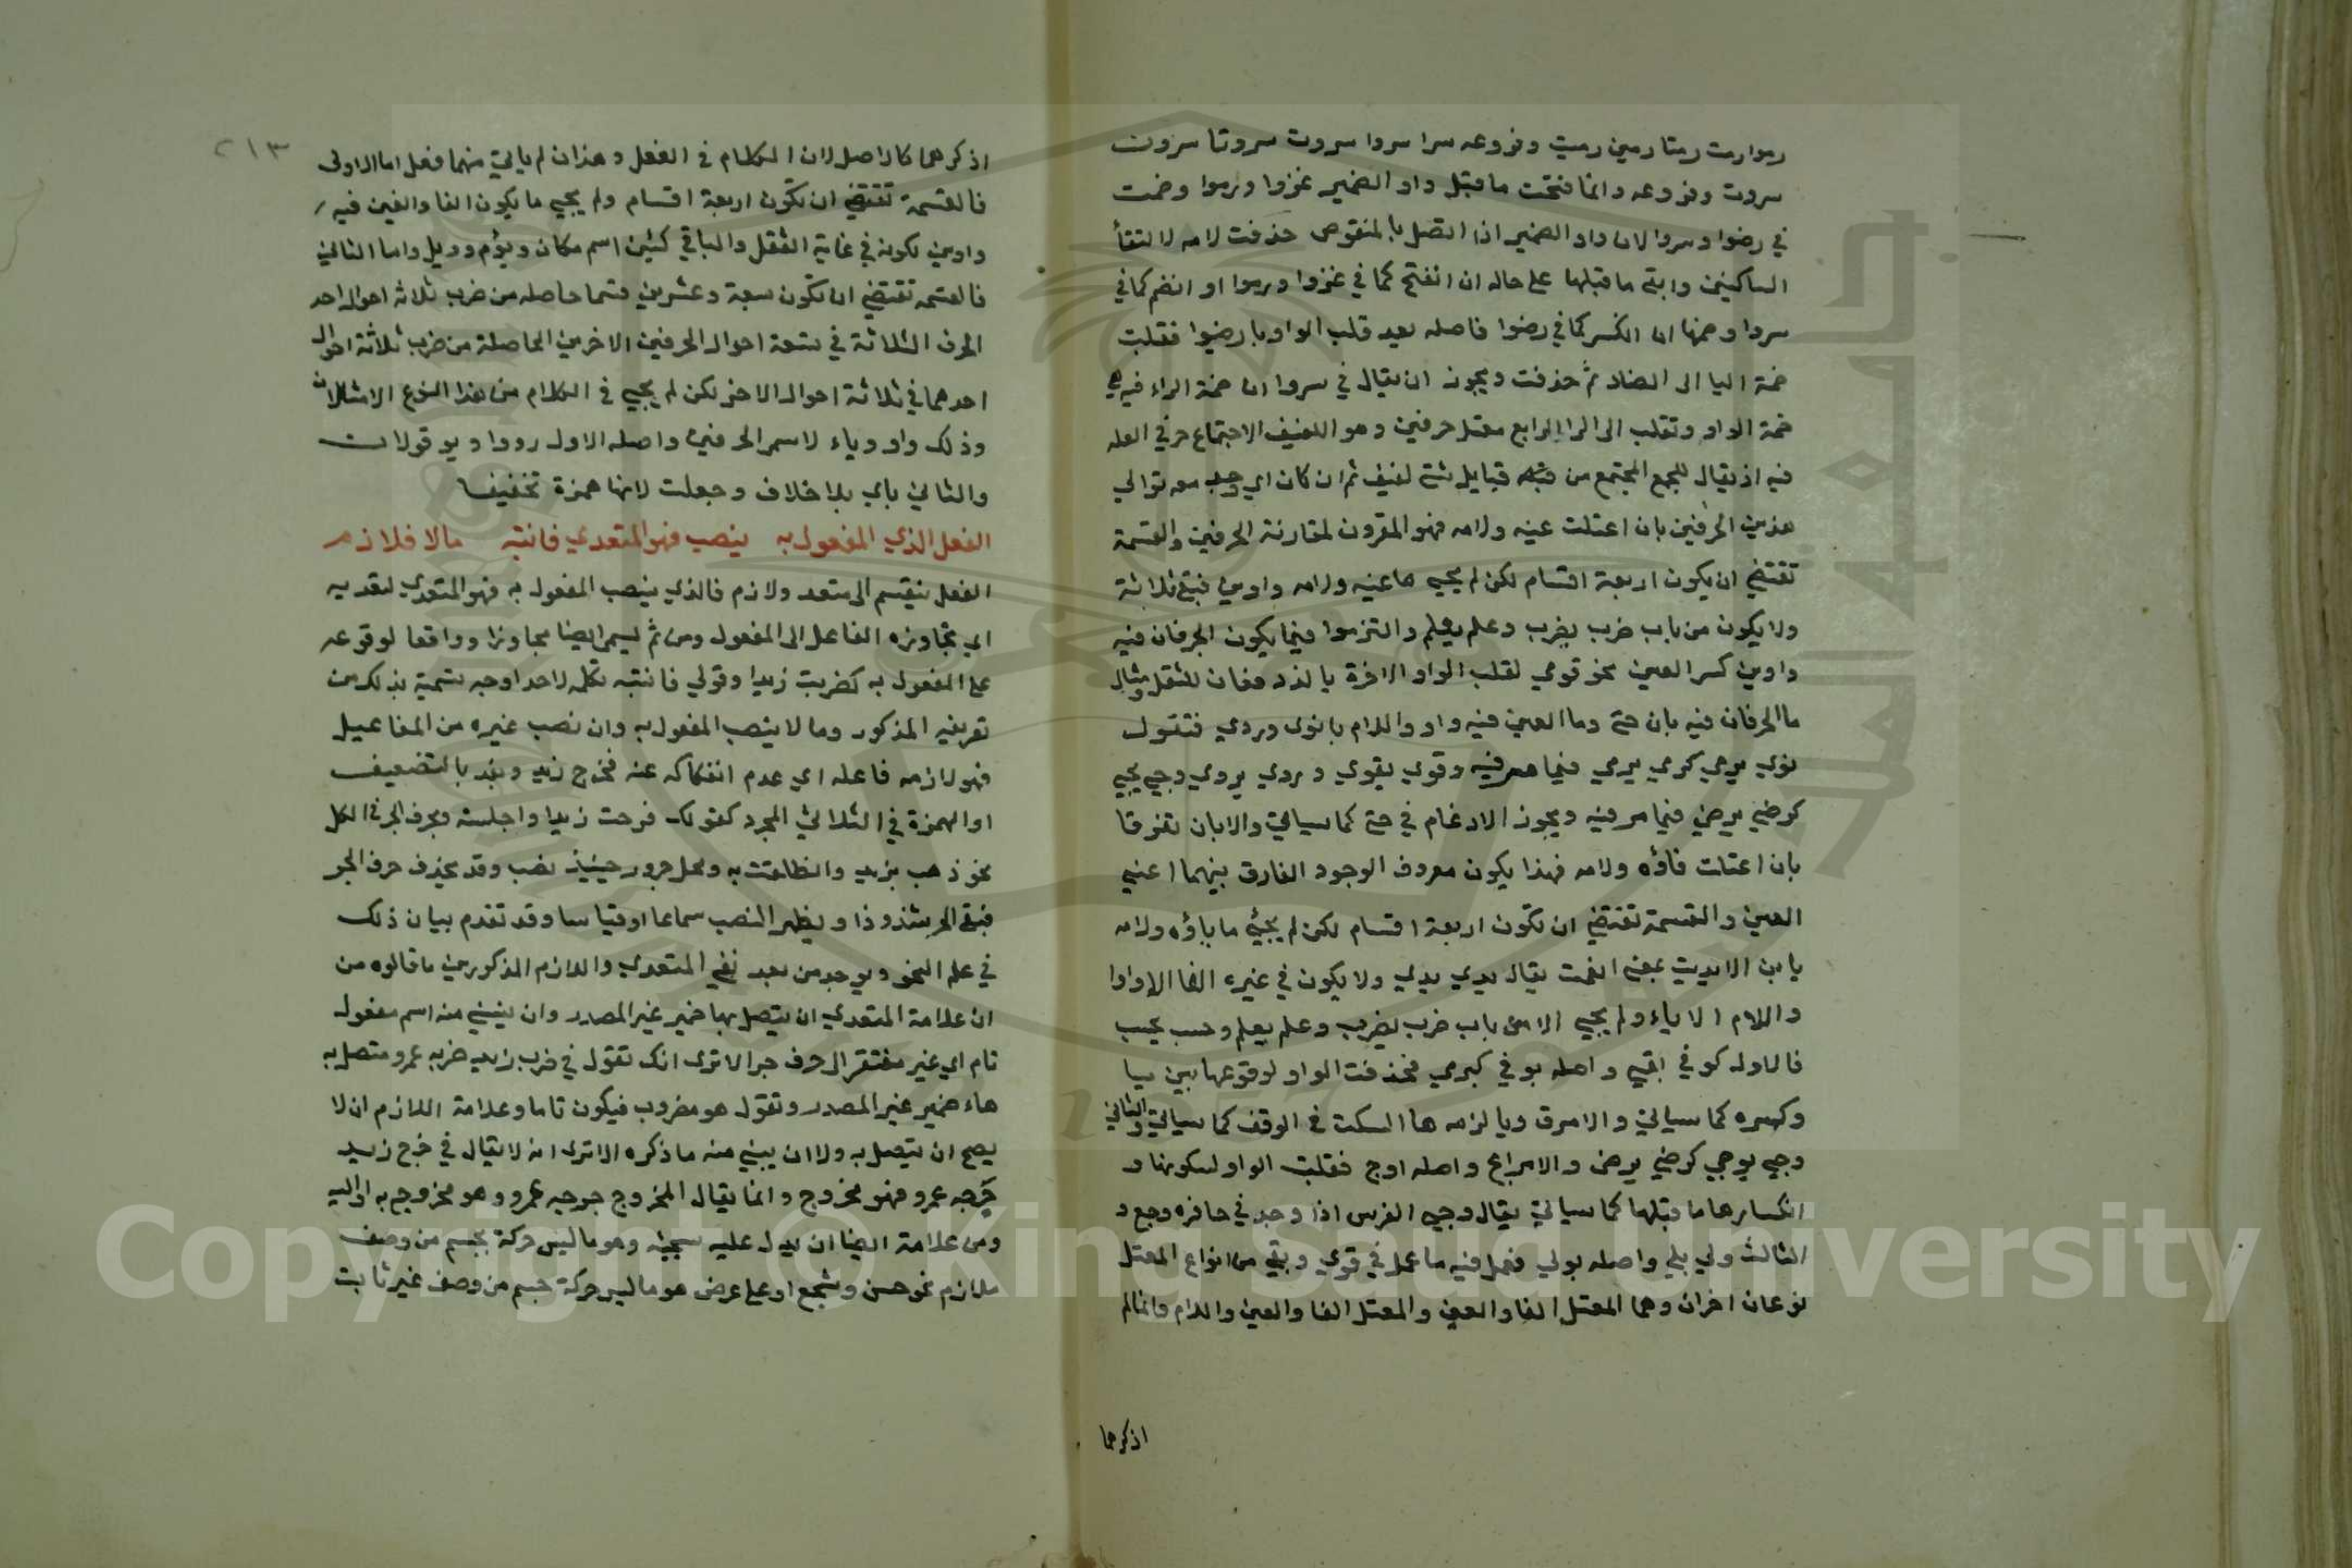 رموا رمت رمتا رمين رميت وفروعه سرا سروا سروت سروتا سرون
سروت وفروعه وانما فتحت ما قبل واو الضمير غزوا ورموا وضمت
في رضوا وسروا لان واو الضمير اذا اتصل بالمنقوص حذفت لامه لالتقأ
الساكنين وابقي ما قبلها على حاله ان انفتح كما في غزوا ورموا او انضم كما في
سروا وضمها ان انكسر كما في رضوا فاصله بعد قلب الواو يا رضيوا فنقلت
ضمة اليا الى الضاد ثم حذفت ويجوز ان يقال في سروا ان ضمة الراء فيه هي
ضمة الواو ونقلت الى الرا الرابع معتل حرفين وهو اللفيف لاجتماع حرفي العله
فيه اذ يقال للجمع المجتمع من قبائل شتى لفيف ثم ان كان اي وجد معه توالي
هذين الحرفين بان اعتلت عينه ولامه فهو المقرون لمقارنة الحرفين والقسمة
تقتضي ان يكون اربعة اقسام لكن لم يجي ما عينه ولامه واوين فبقي ثلاثة
ولا يكون من باب ضرب يضرب وعلم يعلم والتزموا فيما يكون الحرفان فيه
واوين كسر العين نحو قوي لقلب الواو الاخرة يا لدفعان للثقل ومثال
ما الحرفان فيه يان حي وما العين فيه واو واللام يا نوى وروي فتقول
نوي ينوي كرمي يرمي فيما مر فيه وقوي يقوي وروي يروي وحي يحيي
كرضي يرضي فيما مر فيه ويجوز الادغام في حي كما سياتي والا بان تفرقا
بان اعتلت فاؤه ولامه فهذا يكون مفروق لوجود الفارق بينهما اعني
العين والقسمة تقتضي ان تكون اربعة اقسام لكن لم يجئ ما ياؤه ولامه
يا من الا يديت بمعنى انعمت يقال يدي يدي ولا يكون في غيره الفا الا واوا
واللام الا ياء ولم يجي الا من باب ضرب يضرب وعلم يعلم وحسب يحسب
فالاول كوقي يقي واصله يوقي كيرمي فحذفت الواو لوقوعها بين يا
وكسره كما سياتي والامر ق ويا لزمه ها السكت في الوقف كما سياتي والثاني
وجي يوجي كرضي يرضى والامر ايج واصله اوج فقلبت الواو لسكونها و
انكسار ما قبلها كما سياتي يقال وجي الفرس اذا وجد في حافره وجع و
الثالث ولي يلي واصله يولي فعمل فيه ما عمل في قوي وبقي من انواع المعتل
نوعان اخران وهما المعتل الفا والعين والمعتل الفا والعين واللام وانما لم
اذكرهما
٢١٣
اذكرهما كالاصل لان الكلام في الفعل وهذان لم ياتي منهما فعل اما الاولى
فالقسمة تقتضي ان تكون اربعة اقسام ولم يجي ما يكون الفا والعين فيه
واوين لكونه في غاية الثقل والباقي كيين اسم مكان ويوم وويل واما الثاني
فالقسمة تقتضي ان تكون سبعة وعشرين قسما حاصله من ضرب ثلاثة احوال احد
الحرف الثلاثة في تسعة احوال الحرفين الاخرين الحاصلة من ضرب ثلاثة احوال
احدهما في ثلاثة احوال الاخر لكن لم يجي في الكلام من هذا النوع الا مثالان
وذلك واو وياء لاسمي الحرفين واصله الاول ووا ويو قولان
والثاني ياي بلا خلاف وجعلت لامها همزة تخفيفا
الفعل الذي المفعول به ينصب فهو المتعدي فانتبه مالا فلازم
الفعل ينقسم الى متعد ولازم فالذي ينصب المفعول به فهو المتعدي لتعديه
اي تجاوزه الفاعل الى المفعول ومن ثم ليسمى ايضا مجاوزا وواقعا لوقوعه
على المفعول به كضربت زيدا وقولي فانتبه تكلمه لاحد اوجه تسمية بذلك من
تعريفه المذكور وما لا ينصب المفعول به وان نصب غيره من المفاعيل
فهو لازمه فاعله اي عدم انفكاكه عنه فخرج زيد ويعد بالتضعيف
او الهمزة في الثلاثي المجرد كقولك فرحت زيدا واجلسته وبحرف الجر في الكل
نحو ذهب بزيد وانطلقت به ومحل مجرور حينيذ نصب وقد يحذف حرف الجر
فيبقى الجر شذوذا ويظهر النصب سماعا او قياسا وقد تقدم بيان ذلك
في علم النحو ويوجد من بعد نفي المتعدي واللازم المذكورين ما قالوه من
ان علامة المتعدي ان يتصل بها ضمير غير المصدر وان يبني منه اسم مفعول
تام اي غير مفتقر الى حرف جر الا ترى انك تقول في ضرب زيد ضربه عمرو متصل به
هاء ضمير غير المصدر وتقول هو مضروب فيكون تاما وعلامة اللازم ان لا
يصح ان يتصل به ولا ان يبني منه ما ذكره الا ترى انه لا يقال في خرج زيد
خرجه عمرو فهو مخروج وانما يقال المخروج خرجه عمرو وهو مخروج به او اليه
ومن علامة ايضا ان يدل عليه سجية وهو ما ليس حركة بجسم من وصف
ملازم نحو حسن وشجع او على عرض هو ما ليس حركة جسم من وصف غير ثابت
Copyright © King Saud University